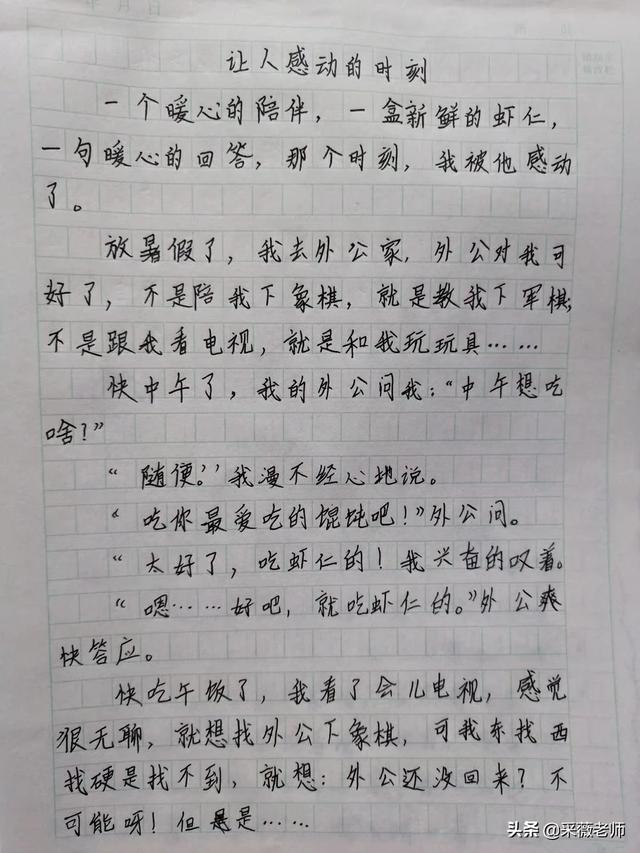 年 月 日
让人感动的时刻
一个暖心的陪伴，一盒新鲜的虾仁，
一句暖心的回答，那个时刻，我被他感动
了。
放暑假了，我去外公家，外公对我可
好了，不是陪我下象棋，就是教我下军棋，
不是跟我看电视，就是和我玩玩具……
快中午了，我的外公问我：“中午想吃
啥？”
“随便。”我漫不经心地说。
“吃你最爱吃的馄饨吧！”外公问。
“太好了，吃虾仁的！我兴奋的叹着。
“嗯……好吧，就吃虾仁的。”外公爽
快答应。
快吃午饭了，我看了会儿电视，感觉
狠无聊，就想找外公下象棋，可我东找西
找硬是找不到，就想：外公还没回来？不
可能呀！但是是……
头条 @采薇老师